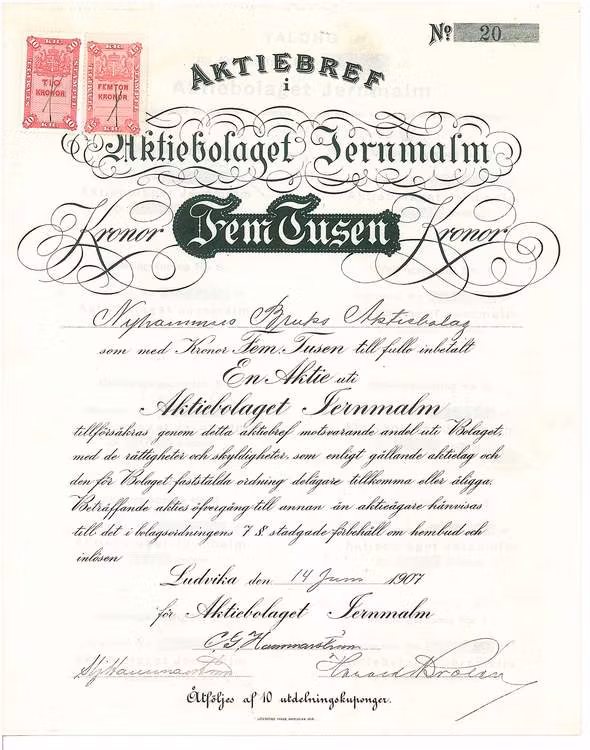 Nº 20
10 KR. 10
STÄMPEL
TIO
KRONOR
10 KR. 10
15 KR. 15
STÄMPEL
FEMTON
KRONOR
15 KR. 15
AKTIEBREF
i
Aktiebolaget Jernmalm
Kronor Fem Tusen Kronor
Nyhammars Bruks Aktiebolag
som med Kronor Fem Tusen till fullo inbetalt
En Aktie uti
Aktiebolaget Jernmalm
tillförsäkras genom detta aktiebref motsvarande andel uti Bolaget,
med de rättigheter och skyldigheter, som enligt gällande aktielag och
den för Bolaget fastställda ordning delägare tillkomma eller åligga.
Beträffande akties öfvergång till annan än aktieägare hänvisas
till det i bolagsordningens 7 §. stadgade förbehåll om hembud och
inlösen
Ludvika den 14 Juni 1907
för Aktiebolaget Jernmalm
C G Hammarström
Harald
Åtföljes af 10 utdelningskuponger.